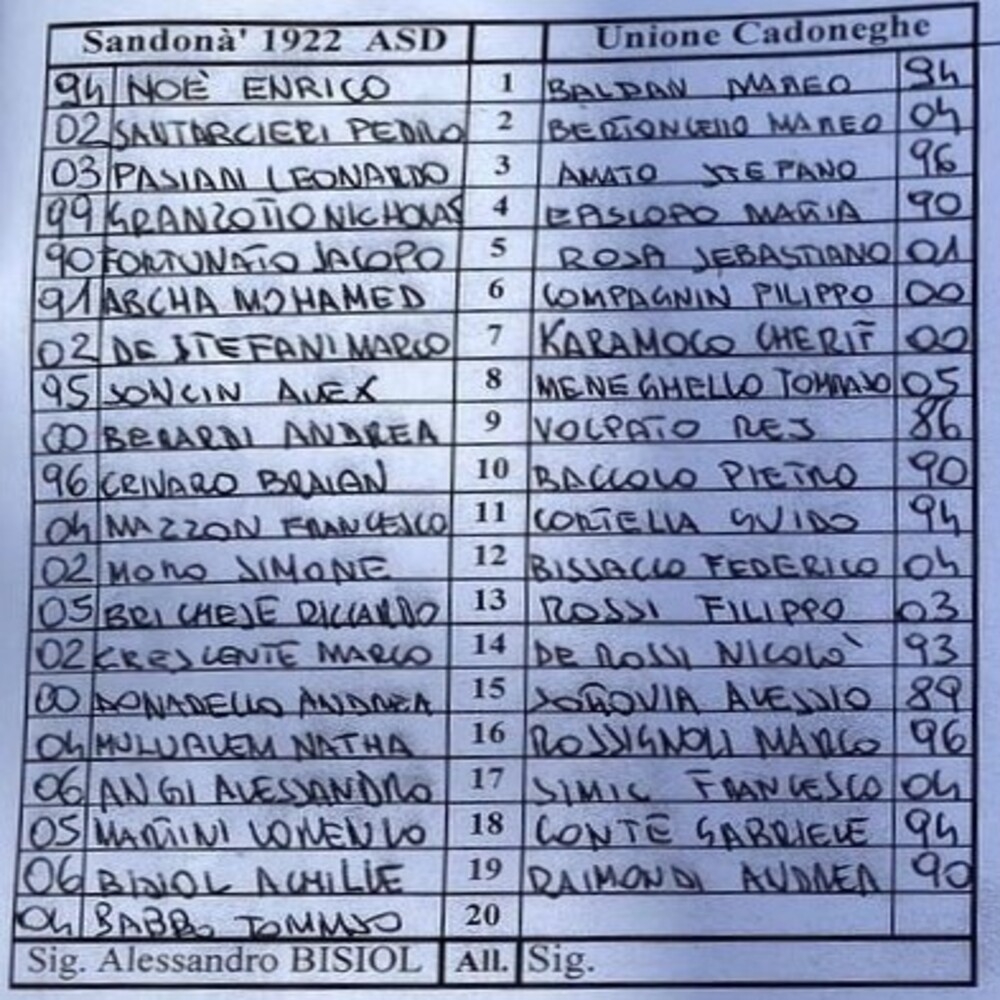 Sandonà' 1922 ASD Unione Cadoneghe
94 NOÈ ENRICO 1 BALDAN MARCO 94
02 SANTARCIERI PEDRO 2 BERTONCELLO MARCO 04
03 PASIAN LEONARDO 3 AMATO STEFANO 96
99 GRANZOTTO NICHOLAS 4 EPISCOPO MATTIA 90
90 FORTUNATO JACOPO 5 ROSA SEBASTIANO 01
91 ARCHA MOHAMED 6 COMPAGNIN FILIPPO 00
02 DE STEFANI MARCO 7 KARAMOCO CHERIF 00
95 SONCIN ALEX 8 MENEGHELLO TOMMASO 05
00 BERARDI ANDREA 9 VOLPATO 86
96 CRIVARO BRAIAN 10 BACCOLO PIETRO 90
04 MAZZON FRANCESCO 11 CORTELLA GUIDO 94
02 MORO SIMONE 12 BISSACCO FEDERICO 04
05 BRICHESE RICCARDO 13 ROSSI FILIPPO 03
02 CRESCENTE MARCO 14 DE ROSSI NICOLO' 93
00 DONADELLO ANDREA 15 ALESSIO 89
04 MULUALEM NATHA 16 ROSSIGNOLI MARCO 96
06 ANGI ALESSANDRO 17 SIMIC FRANCESCO 04
05 MARTINI LORENZO 18 CONTE GABRIELE 94
06 BISIOL ACHILLE 19 RAIMONDI ANDREA 90
04 BABBO TOMMASO 20
Sig. Alessandro BISIOL All. Sig.